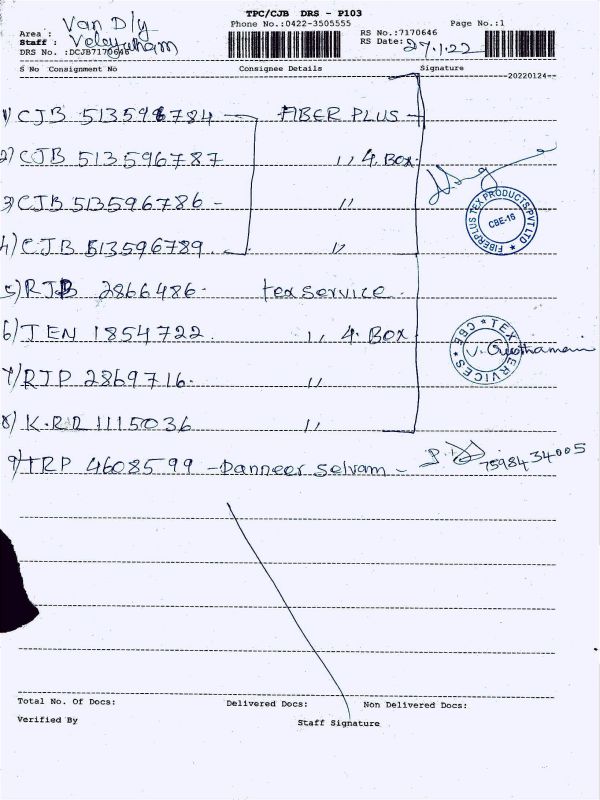 TPC/CJB DRS - P103
Phone No.:0422-3505555
Page No.:1
Area : Van D/y
Staff : Velayutham
DRS No. :DCJB7170646
RS No.:7170646
RS Date: 27.1.22
S No Consignment No Consignee Details Signature
20220124
1) CJB 513596784 FIBER PLUS
2) CJB 513596787 ,, 4 Box.
3) CJB 513596786 - ,,
4) CJB 513596789. ,,
FIBERPLUS TEX PRODUCTS PVT LTD
CBE-16
5) RJB 2866486. tex service.
6) JEN 1854722. ,, 4 Box
TEX SERVICES CBE
7) RJP 2869716. ,,
8) K.RR 1115036 ,,
9) TRP 4608599 - Panneer Selvam - 7598434005
Total No. Of Docs: Delivered Docs: Non Delivered Docs:
Verified By Staff Signature